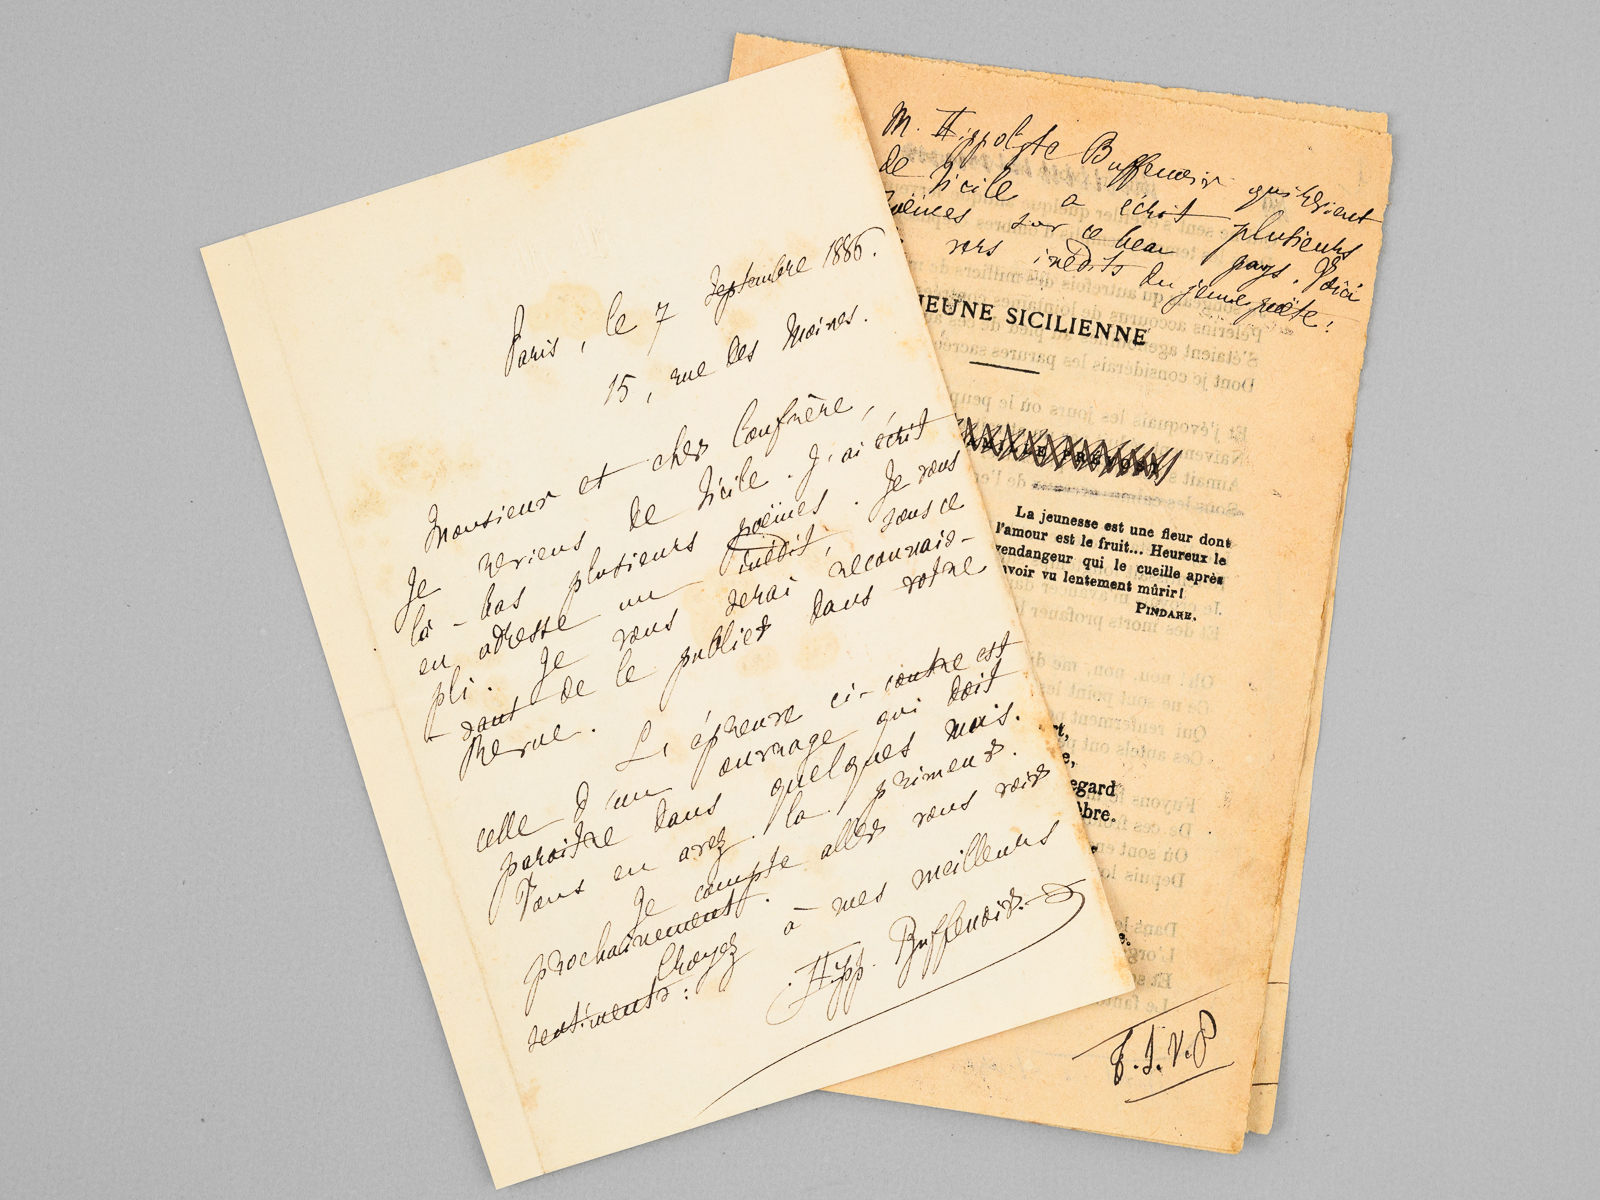 Paris, le 7 Septembre 1886.
15, rue des Moines.
Monsieur et cher Confrère,
Je reviens de Sicile. J'ai écrit
là-bas plusieurs poëmes. Je vous
en adresse un inédit, sous ce
pli. Je vous serai reconnais-
-sant de le publier dans votre
Revue.
L'épreuve ci-contre est
celle d'un ouvrage qui doit
paraître dans quelques mois.
Vous en avez la primeur.
Je compte aller vous voir
prochainement.
Croyez à mes meilleurs
sentiments:
Hipp. Buffenoir.
M. Hippolyte Buffenoir qui revient
de Sicile a écrit plusieurs
poëmes sur ce beau pays. Voici
vers inédits du jeune poëte:
JEUNE SICILIENNE
La jeunesse est une fleur dont
l'amour est le fruit... Heureux le
vendangeur qui le cueille après
avoir vu lentement mûrir!
PINDARE.
egard
bre.
T.S.V.P